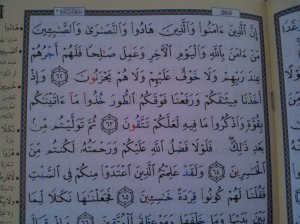 إِنَّ ٱلَّذِينَ ءَامَنُوا۟ وَٱلَّذِينَ هَادُوا۟ وَٱلنَّصَـٰرَىٰ وَٱلصَّـٰبِـِٔينَ
مَنْ ءَامَنَ بِٱللَّهِ وَٱلْيَوْمِ ٱلْـَٔاخِرِ وَعَمِلَ صَـٰلِحًا فَلَهُمْ أَجْرُهُمْ
عِندَ رَبِّهِمْ وَلَا خَوْفٌ عَلَيْهِمْ وَلَا هُمْ يَحْزَنُونَ ٦٢ وَإِذْ
أَخَذْنَا مِيثَـٰقَكُمْ وَرَفَعْنَا فَوْقَكُمُ ٱلطُّورَ خُذُوا۟ مَآ ءَاتَيْنَـٰكُم
بِقُوَّةٍ وَٱذْكُرُوا۟ مَا فِيهِ لَعَلَّكُمْ تَتَّقُونَ ٦٣ ثُمَّ تَوَلَّيْتُم مِّنۢ
بَعْدِ ذَٰلِكَ ۖ فَلَوْلَا فَضْلُ ٱللَّهِ عَلَيْكُمْ وَرَحْمَتُهُۥ لَكُنتُم مِّنَ
ٱلْخَـٰسِرِينَ ٦٤ وَلَقَدْ عَلِمْتُمُ ٱلَّذِينَ ٱعْتَدَوْا۟ مِنكُمْ فِى ٱلسَّبْتِ
فَقُلْنَا لَهُمْ كُونُوا۟ قِرَدَةً خَـٰسِـِٔينَ ٦٥ فَجَعَلْنَـٰهَا نَكَـٰلًا لِّمَا